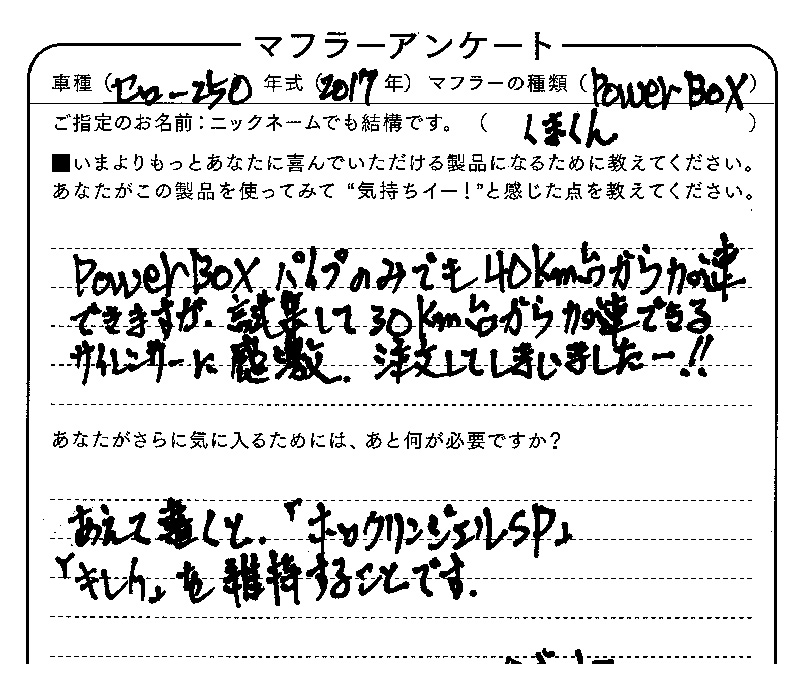 マフラーアンケート
車種（セロー250 年式（2017年）マフラーの種類（PowerBOX）
ご指定のお名前：ニックネームでも結構です。（くまくん）
■いまよりもっとあなたに喜んでいただける製品になるために教えてください。
あなたがこの製品を使ってみて“気持ちイー！”と感じた点を教えてください。
PowerBOX パイプのみでも40Km台から加速
できますが、試乗して30Km台から加速できる
サイレンサーに感激、注文してしまいましたー!!
あなたがさらに気に入るためには、あと何が必要ですか？
あえて書くと、「ホックリンジェルSP」
「キレイ」を維持することです。